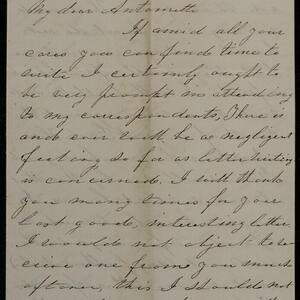 My dear Antoinette
If amid all your
cares you can find time to
write I certainly ought to
be very prompt in attending
to my correspondents. There is
and ever will be a negligent
feeling so far as letter writing
is concerned. I will thank
you many times for your
last good, interesting letter.
I would not object to re
ceive one from you much
oftener, this I should not